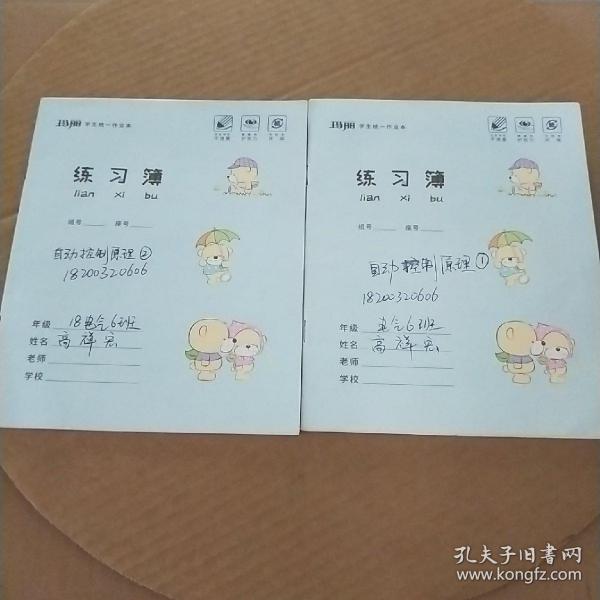 玛丽 学生统一作业本
练习簿
lian xi bu
组号 座号
自动控制原理②
18200320606
年级 18电气6班
姓名 高祥宏
老师
学校
玛丽 学生统一作业本
练习簿
lian xi bu
组号 座号
自动控制原理①
18200320606
年级 电气6班
姓名 高祥宏
老师
学校
孔夫子旧书网
www.kongfz.com